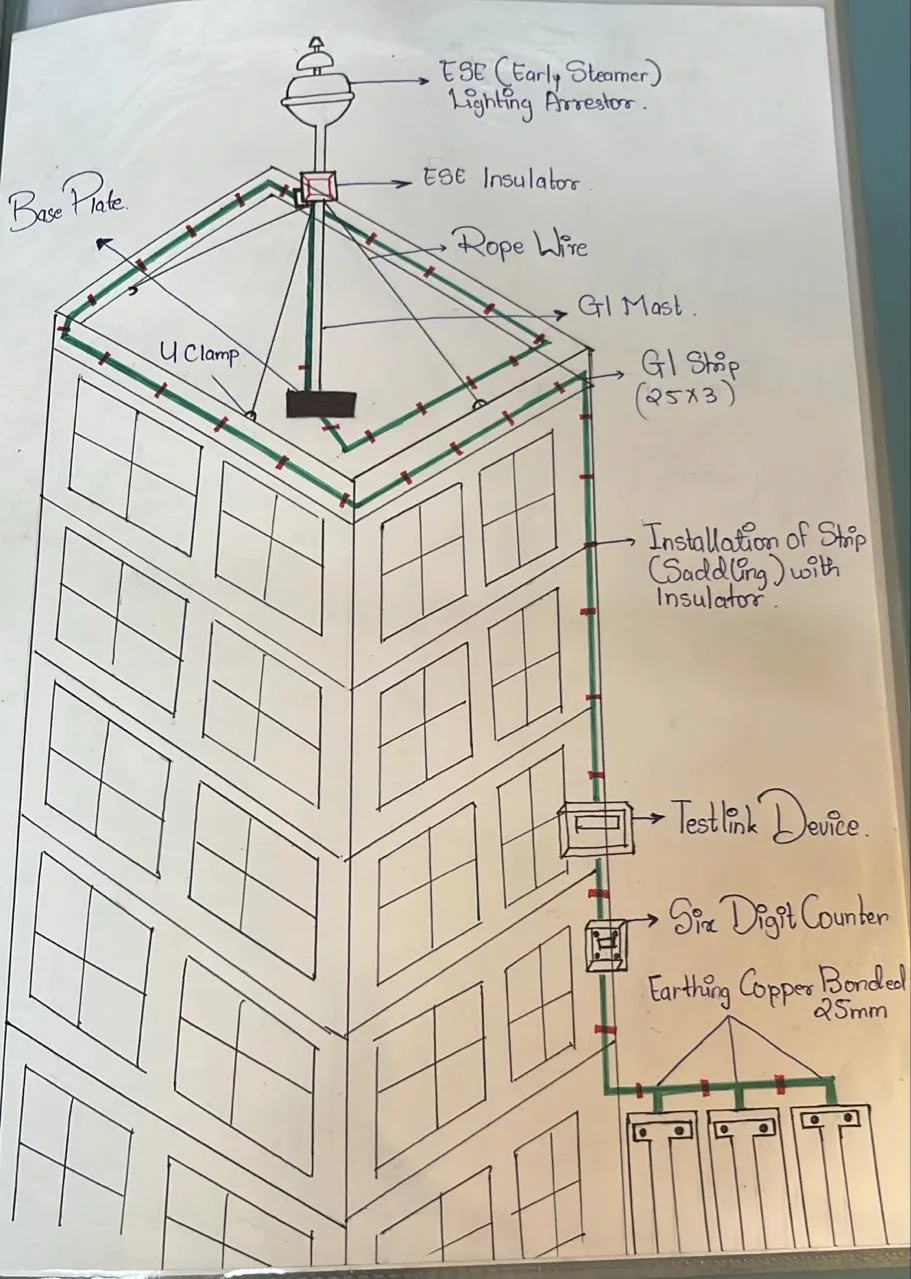 ESE (Early Steamer)
Lighting Arrestor.
ESE Insulator.
Base Plate.
Rope Wire
GI Mast.
U Clamp
GI Strip
(25x3)
Installation of Strip
(Saddling) with
Insulator.
Testlink Device.
Six Digit Counter
Earthing Copper Bonded
25mm